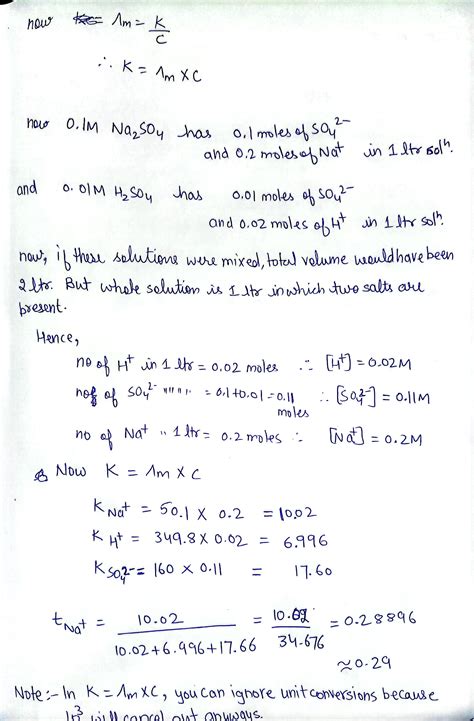 now Λm = K/C
∴ K = Λm × C
now 0.1M Na₂SO₄ has 0.1 moles of SO₄²⁻
and 0.2 moles of Na⁺ in 1 ltr solⁿ.
and 0.01M H₂SO₄ has 0.01 moles of SO₄²⁻
and 0.02 moles of H⁺ in 1 ltr solⁿ.
now, if these solutions were mixed, total volume would have been
2 ltr. But whole solution is 1 ltr in which two salts are
present.
Hence,
no of H⁺ in 1 ltr = 0.02 moles ∴ [H⁺] = 0.02M
no of SO₄²⁻ " " " = 0.1+0.01 = 0.11 moles ∴ [SO₄²⁻] = 0.11M
no of Na⁺ " 1 ltr = 0.2 moles ∴ [Na⁺] = 0.2M
Now K = Λm × C
K Na⁺ = 50.1 × 0.2 = 10.02
K H⁺ = 349.8 × 0.02 = 6.996
K SO₄²⁻ = 160 × 0.11 = 17.60
t Na⁺ = 10.02 / 10.02+6.996+17.66 = 10.02 / 34.676 = 0.28896
≈ 0.29
Note:- In K = Λm × C, you can ignore unit conversions because
10³ will cancel out anyways.